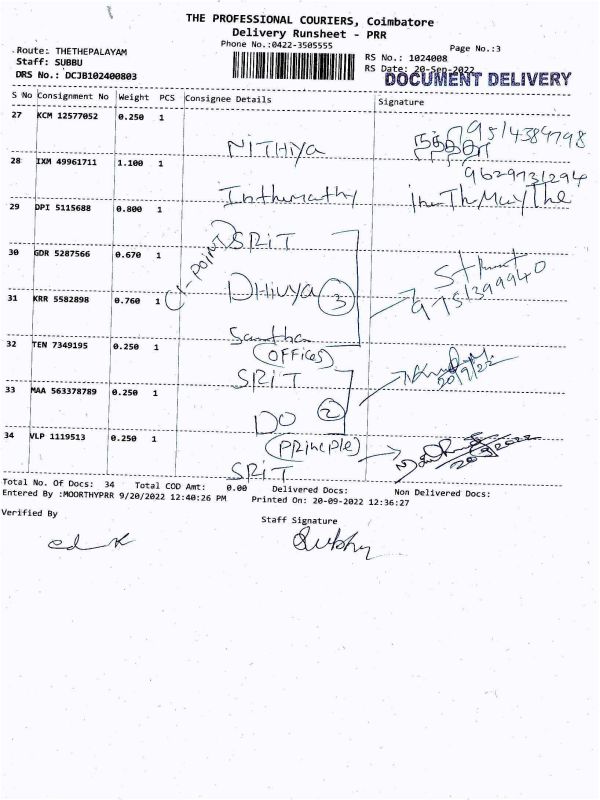 THE PROFESSIONAL COURIERS, Coimbatore
Delivery Runsheet - PRR
Phone No.:0422-3505555
Page No.:3
Route: THETHEPALAYAM
Staff: SUBBU
DRS No.: DCJB102400803
RS No.: 1024008
RS Date: 20-Sep-2022
DOCUMENT DELIVERY
S No Consignment No Weight PCS Consignee Details Signature
27 KCM 12577052 0.250 1
NITHIYA 9514384798
28 IXM 49961711 1.100 1
9629731294
Inthumathy
29 DPI 5115688 0.800 1
SRIT
30 GDR 5287566 0.670 1
DHIVYA 3
9751399940
31 KRR 5582898 0.760 1
Santha
(OFFICES)
32 TEN 7349195 0.250 1
SRIT
20/9/22
33 MAA 563378789 0.250 1
DO 2
(PRINCIPLE)
34 VLP 1119513 0.250 1
SRIT
Total No. Of Docs: 34 Total COD Amt: 0.00 Delivered Docs: Non Delivered Docs:
Entered By :MOORTHYPRR 9/20/2022 12:40:26 PM Printed On: 20-09-2022 12:36:27
Verified By
Staff Signature